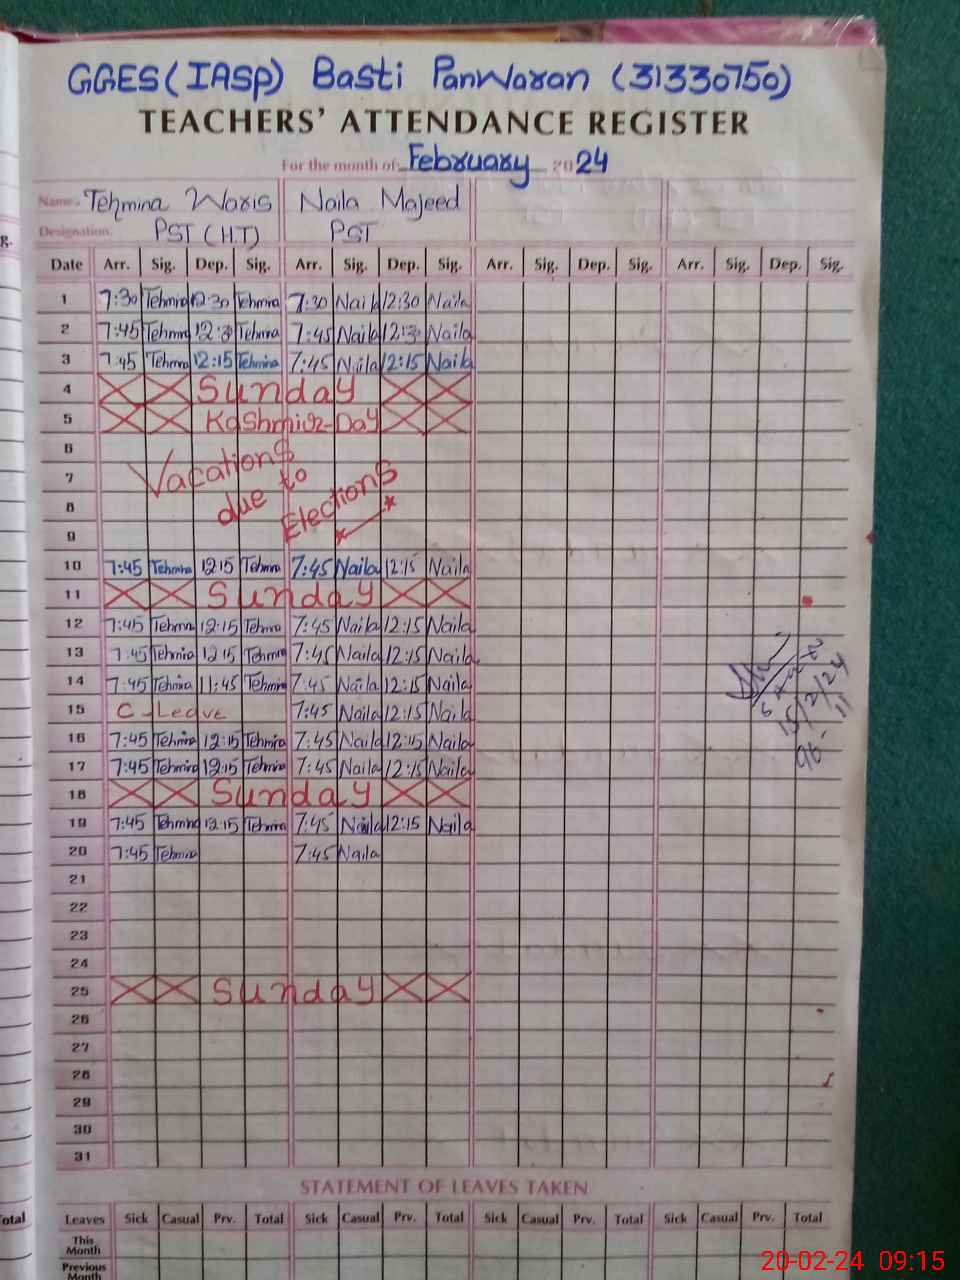 GGES (IASP) Basti Panwaran (31330750)
TEACHERS' ATTENDANCE REGISTER
For the month of February 2024
Name. Tehmina Waris Naila Majeed
Designation. PST (H.T) PST
g.
Date Arr. Sig. Dep. Sig. Arr. Sig. Dep. Sig. Arr. Sig. Dep. Sig. Arr. Sig. Dep. Sig.
1 7:30 Tehmina 12:30 Tehmina 7:30 Naila 12:30 Naila
2 7:45 Tehmina 12:30 Tehmina 7:45 Naila 12:30 Naila
3 7:45 Tehmina 12:15 Tehmina 7:45 Naila 12:15 Naila
4 Sunday
5 Kashmir-Day
6
7 Vacations
8 due to
9 Elections
10 7:45 Tehmina 12:15 Tehmina 7:45 Naila 12:15 Naila
11 Sunday
12 7:45 Tehmina 12:15 Tehmina 7:45 Naila 12:15 Naila
13 7:45 Tehmina 12:15 Tehmina 7:45 Naila 12:15 Naila
14 7:45 Tehmina 11:45 Tehmina 7:45 Naila 12:15 Naila
15 C-Leave 7:45 Naila 12:15 Naila
15/2/24
16 7:45 Tehmina 12:15 Tehmina 7:45 Naila 12:15 Naila
17 7:45 Tehmina 12:15 Tehmina 7:45 Naila 12:15 Naila
18 Sunday
19 7:45 Tehmina 12:15 Tehmina 7:45 Naila 12:15 Naila
20 7:45 Tehmina 7:45 Naila
21
22
23
24
25 Sunday
26
27
28
29
30
31
STATEMENT OF LEAVES TAKEN
Leaves Sick Casual Prv. Total Sick Casual Prv. Total Sick Casual Prv. Total Sick Casual Prv. Total
This Month
Previous Month
20-02-24 09:15